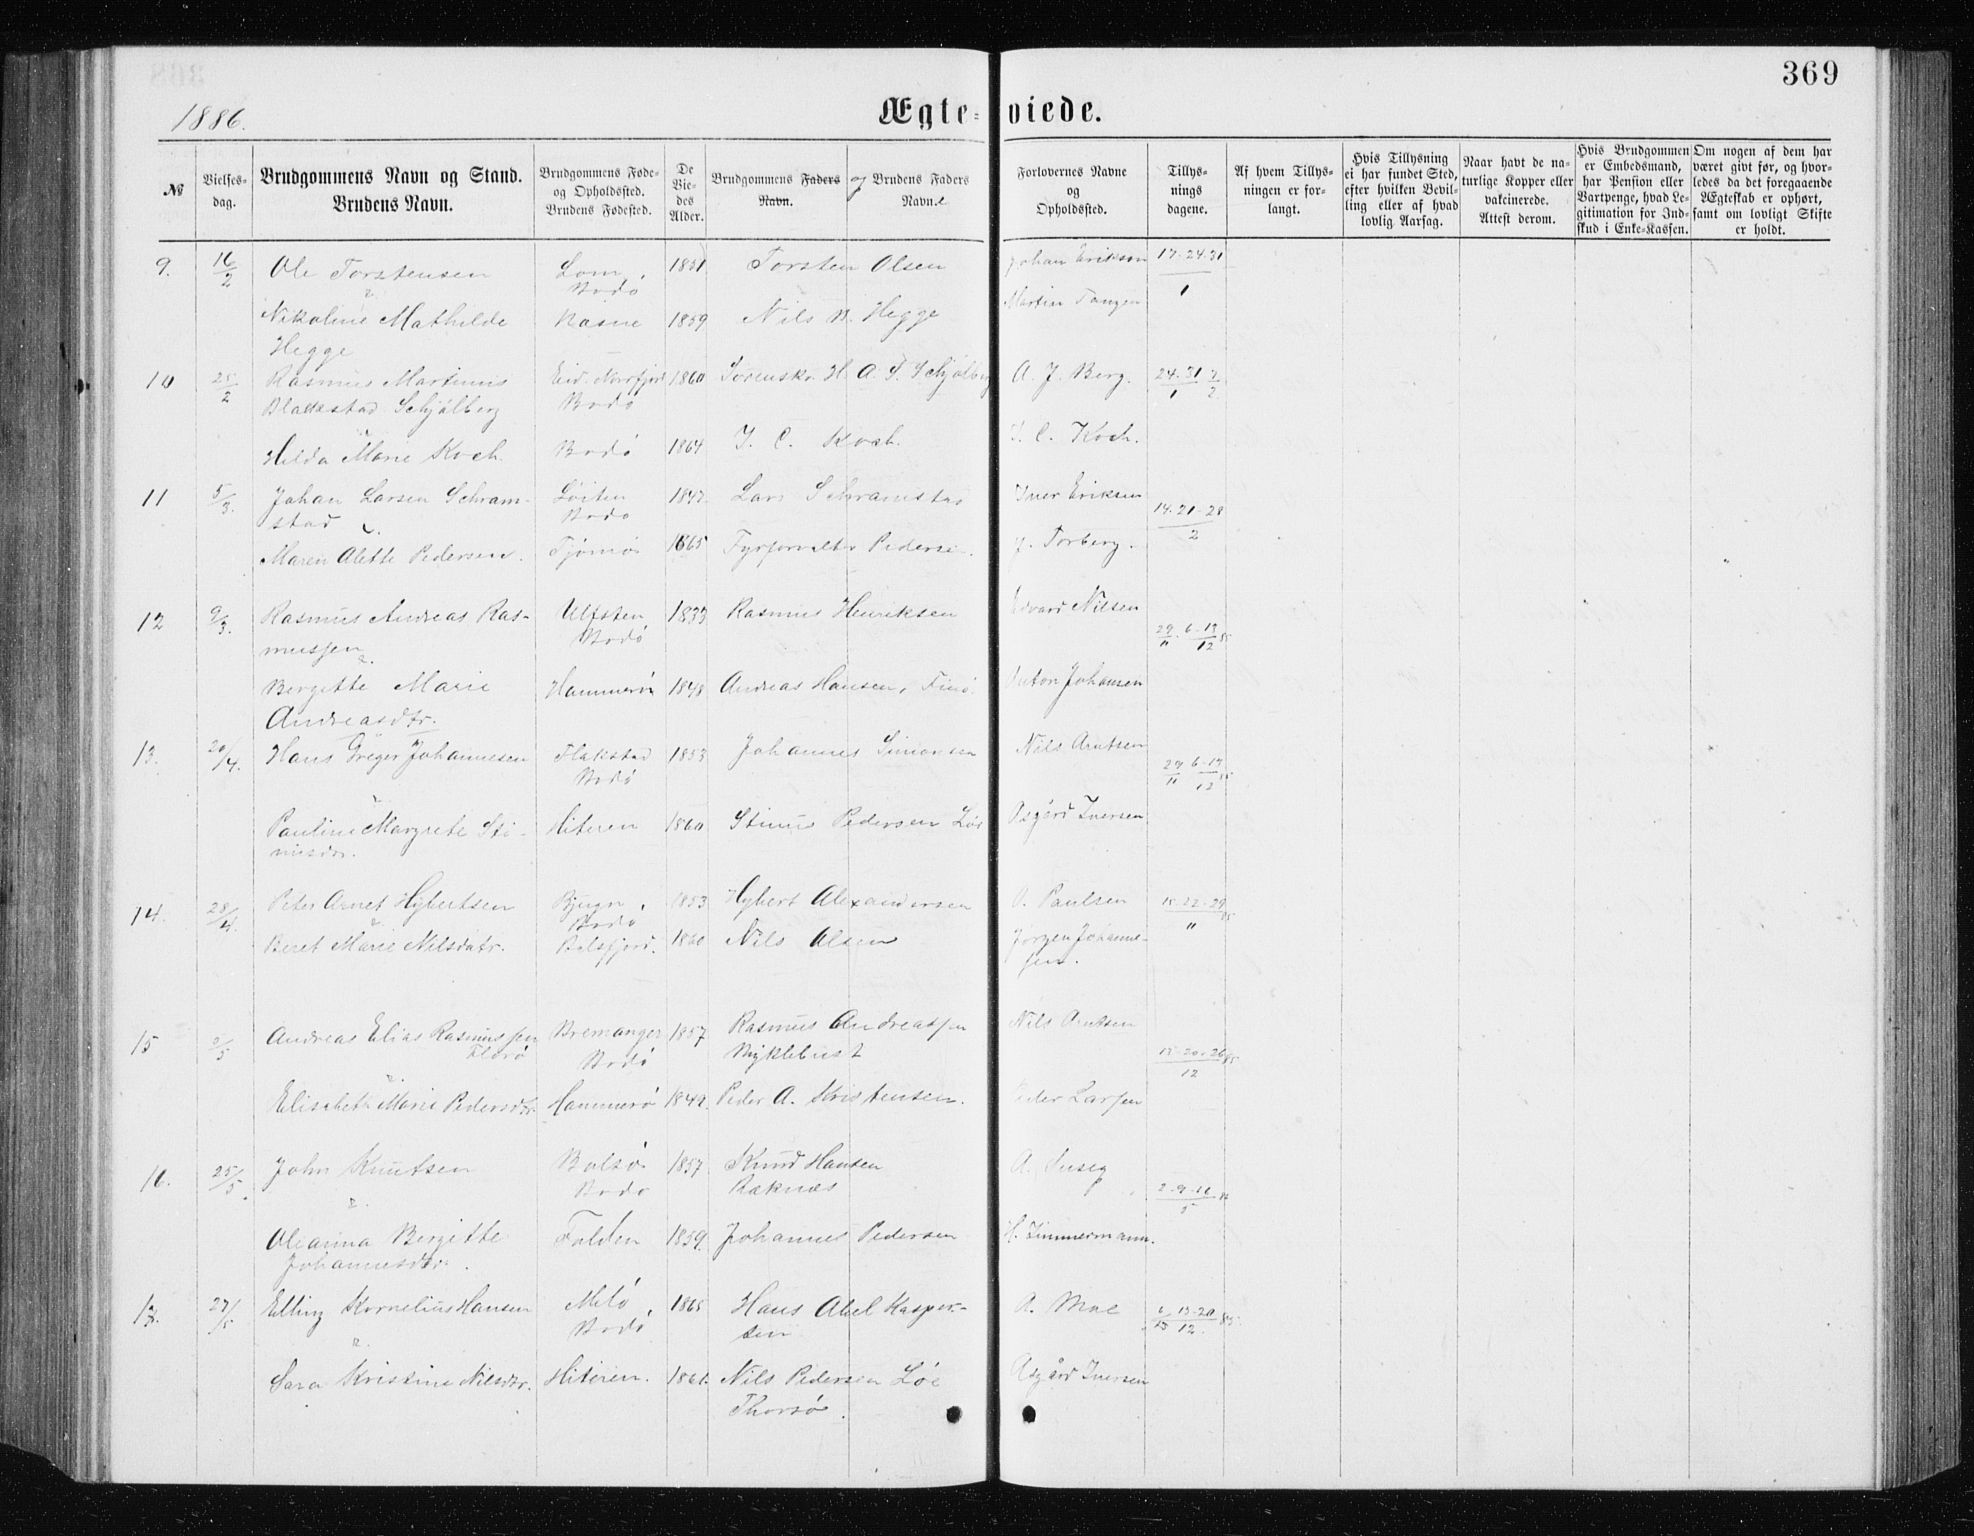 369
1886.
Ægteviede.
№
Vielses-
dag.
Brudgommens Navn og Stand.
Brudens Navn.
Brudgommens Føde-
og Opholdssted.
Brudens Fødested.
De
Vie-
des
Alder.
Brudgommens Faders
Navn.
og Brudens Faders
Navne
Forlovernes Navne
og
Opholdssted.
Tillys-
nings
dagene.
Af hvem Tillys-
ningen er for-
langt.
Hvis Tillysning
ei har fundet Sted,
efter hvilken Bevil-
ling eller af hvad
lovlig Aarsag.
Naar havt de na-
turlige Kopper eller
vakcinerede.
Attest derom.
Hvis Brudgommen
er Embedsmand,
har Pension eller
Vartpenge, hvad Le-
gitimation for Ind-
skud i Enke-Kassen.
Om nogen af dem har
været givt før, og hvor-
ledes da det foregaaende
Ægteskab er ophørt,
samt om lovligt Skifte
er holdt.
9. 16/2 Ole Torstensen Lom, 1851 Torsten Olsen Johan Erikson 17-24-31
Bodø 1
Nikoline Mathilde Næsne 1859 Nils B. Hegge Martin Tangen
Hegge
10 25/2 Rasmus Martinus Eid. Norrfjord 1860 Sorenskr. H. A. S. Schjølberg A. J. Berg. 24.31/1 7/2
Blakstad Schjølberg Bodø
Hilda Marie Koch Bodø 1864 J. C. Koch. J. C. Koch.
11 5/3. Johan Larsen Schram- Løiten 1842 Lars Schramstad Iver Eriksen 14.21-28
stad Bodø 2
Maren Alette Pedersen. Tjömö 1865 Fyrforvalter Pedersen. J. Torberg.
12 9/3. Rasmus Andreas Ras- Ulfsten, 1833 Rasmus Henriksen Edvard Nilsen
mussen Bodø 29/11. 6-13/12 85
Bergitte Marie Hammerø 1848 Andreas Hansen, Finø. Anton Johansen
Andreasdtr.
13. 20/4. Hans Greger Johannesen Flakstad 1853 Johannes Simonsen Nils Arntsen
Bodø 29/11 6-13/12 85
Pauline Margrete Sti- Hiteren 1860 Stinus Pedersen Løe Asgård Iversen
nusdtr.
14. 28/4. Peter Arnet Hybertsen Bjugn, 1853 Hybert Alexandersen O. Paulsen 15-22-29
Bodø 85
Beret Marie Nilsdatr. Balsfjord. 1860 Nils Olsen Jørgen Johanne- 11
sen.
15 2/5 Andreas Elias Rasmussen Bremanger 1857 Rasmus Andreassen Nils Arntsen
Florø Bodø Myklebust 13-20-26/12 85
Elisabeth Marie Pedersdtr. Hammerø 1842. Peder A. Kristensen. Peder Larsen
16. 25/5. John Knutsen Bolsø 1857 Knud Hansen
Bodø Raknæs 2-9-16
Oleanna Bergitte Folden 1859. Johannes Pedersen H. Zimmermann.
Johannesdtr.
17. 27/5 Elling Kornelius Hansen Melø, 1865 Hans Abel Kasper- A. Moe 6 13-20/12 85
Bodø sen
Sara Kristine Nilsdtr. Hiteren. 1861. Nils Pedersen Løe Asgård Iversen
Thorsø.